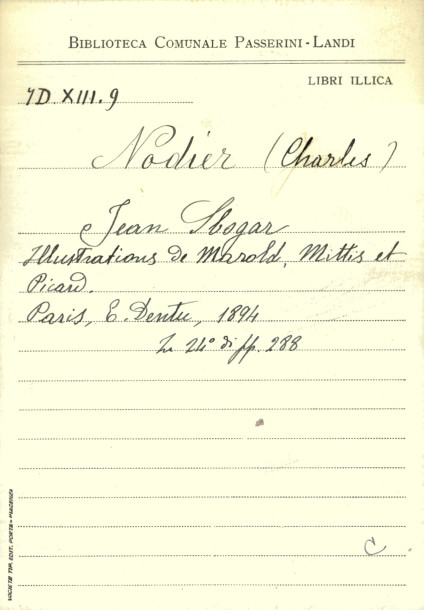 BIBLIOTECA COMUNALE PASSERINI-LANDI
LIBRI ILLICA
7D. XIII. 9
Nodier (Charles)
Jean Sbogar
Illustrations de Marold, Mittis et
Picard.
Paris, E. Dentu, 1894
In 24° di pp. 288
C
SOCIETÀ TIP. EDIT. PORTA - PIACENZA